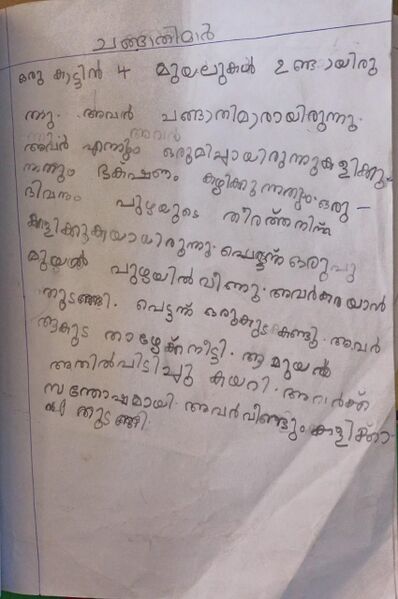 ചങ്ങാതിമാർ
ഒരു കാട്ടിൻ 4 മുയലുകൾ ഉണ്ടായിരു
ന്നു. അവർ ചങ്ങാതിമാരായിരുന്നു.
അവർ
അവർ എന്നും ഒരുമിപ്പായിരുന്നു കളിക്കു
ന്നതും ഭക്ഷണം കഴിക്കുന്നതും. ഒരു
ദിവസം പുഴയുടെ തീരത്ത് നിന്ന്
കളിക്കുകയായിരുന്നു. പെട്ടന്ന് ഒരു
മുയൽ പുഴയിൽ വീണു. അവർ കരയാൻ
തുടങ്ങി. പെട്ടന്ന് ഒരു കുട കണ്ടു. അവർ
ആ കുട താഴേക്ക് നീട്ടി. ആ മുയൽ
അതിൽ പിടിച്ചു കയറി. അവർക്ക്
സന്തോഷമായി. അവർ വീണ്ടും കളിക്കാ
തുടങ്ങി.